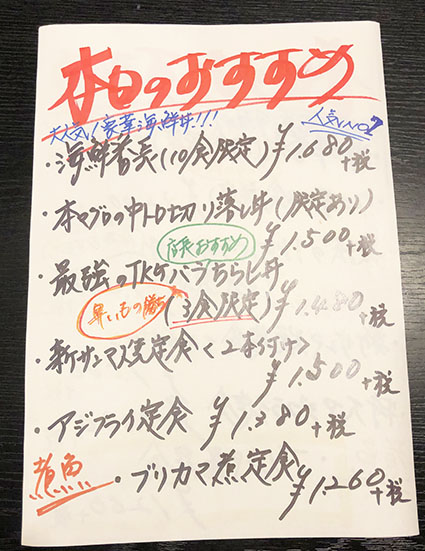 本日のおすすめ
大人気!豪華海鮮丼!!!
人気NO1
・海鮮番長(10食限定)¥1.680+税
・本マグロの中トロ切り落し丼(限定あり)
店長おすすめ ¥1.500+税
・最強のTKGバラちらし丼
早いもの勝ち (3食限定)¥1.480+税
・新サンマ煮定食<2本付け>
¥1.500+税
・アジフライ定食 ¥1.380+税
煮魚 ・ブリカマ煮定食 ¥1.260+税